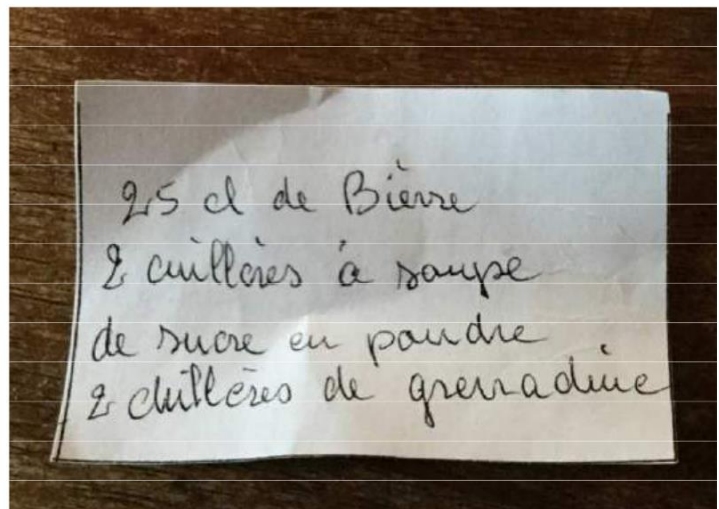 25 cl de Bière
2 cuillères à soupe
de sucre en poudre
2 cuillères de grenadine